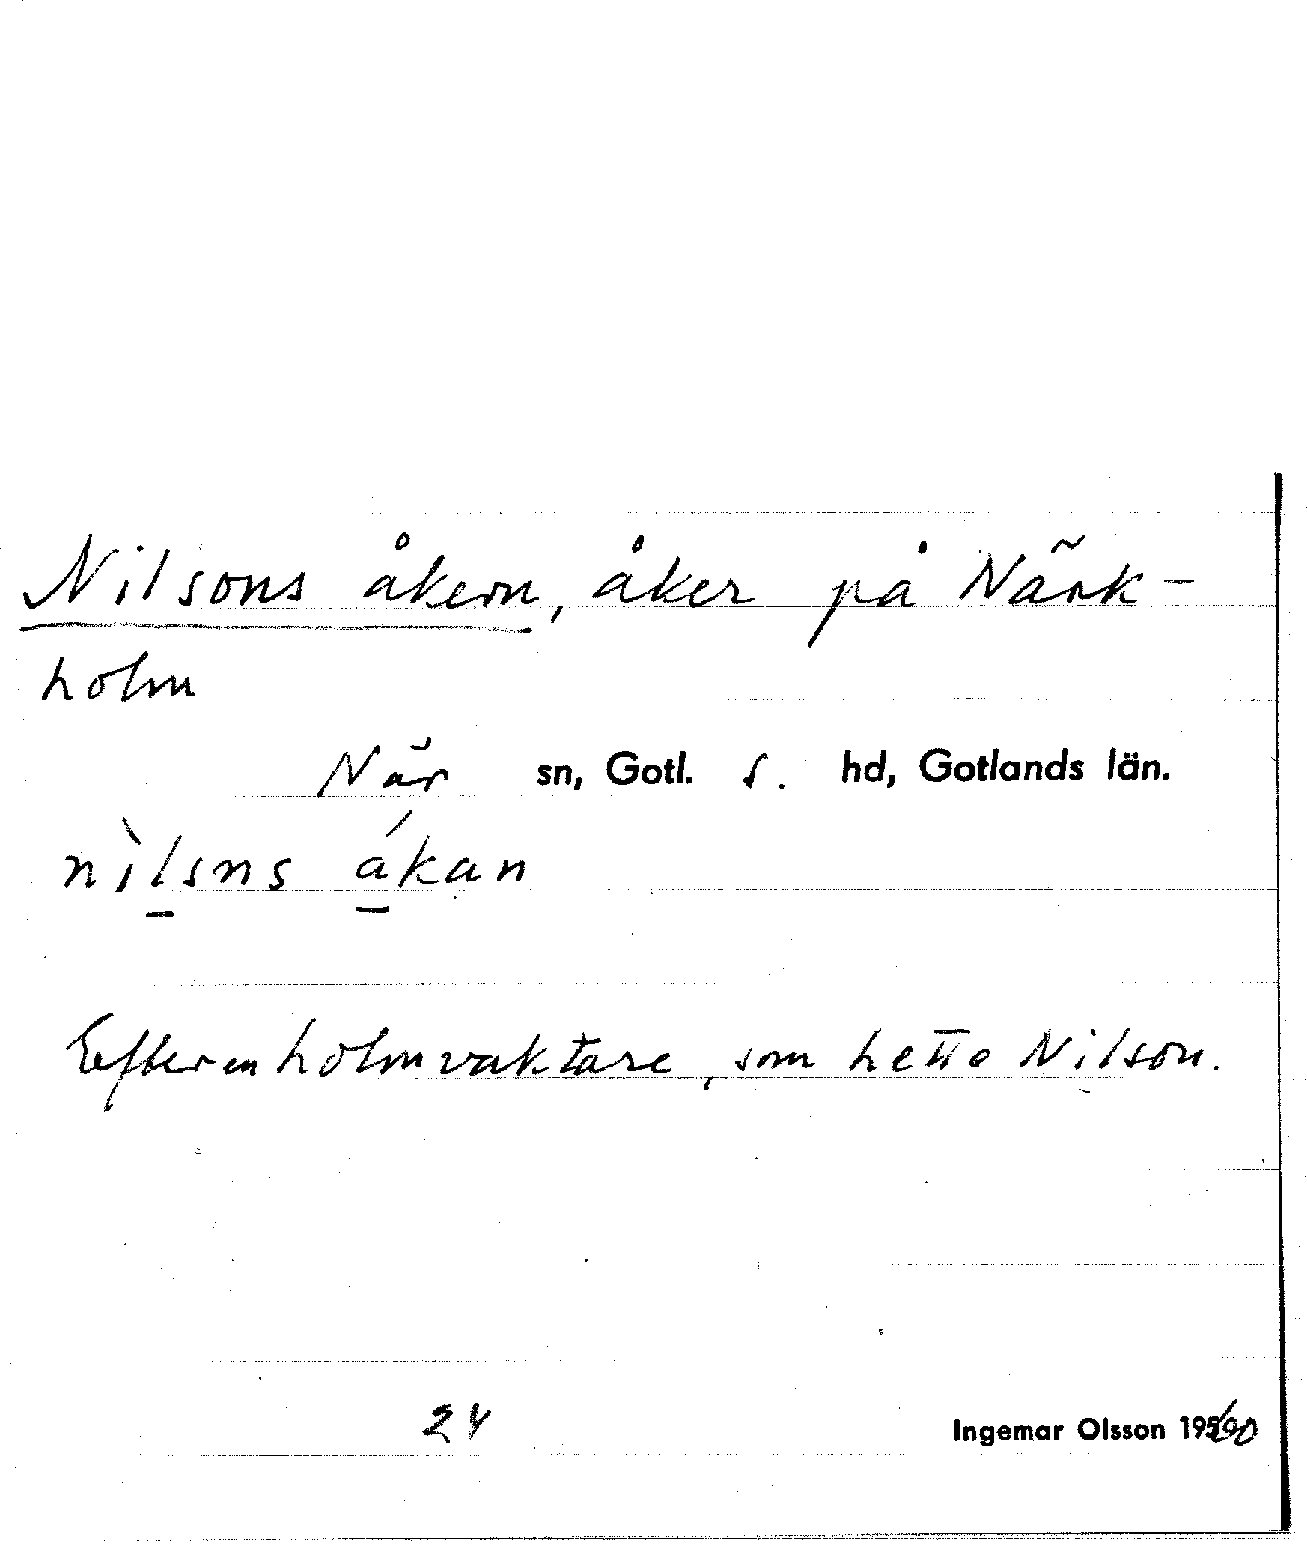 Nilsons åkern, åker på Närk-
holm
När sn, Gotl. s. hd, Gotlands län.
nìlsns ákan
Efter en holmvaktare, som hette Nilson.
24
Ingemar Olsson 1960